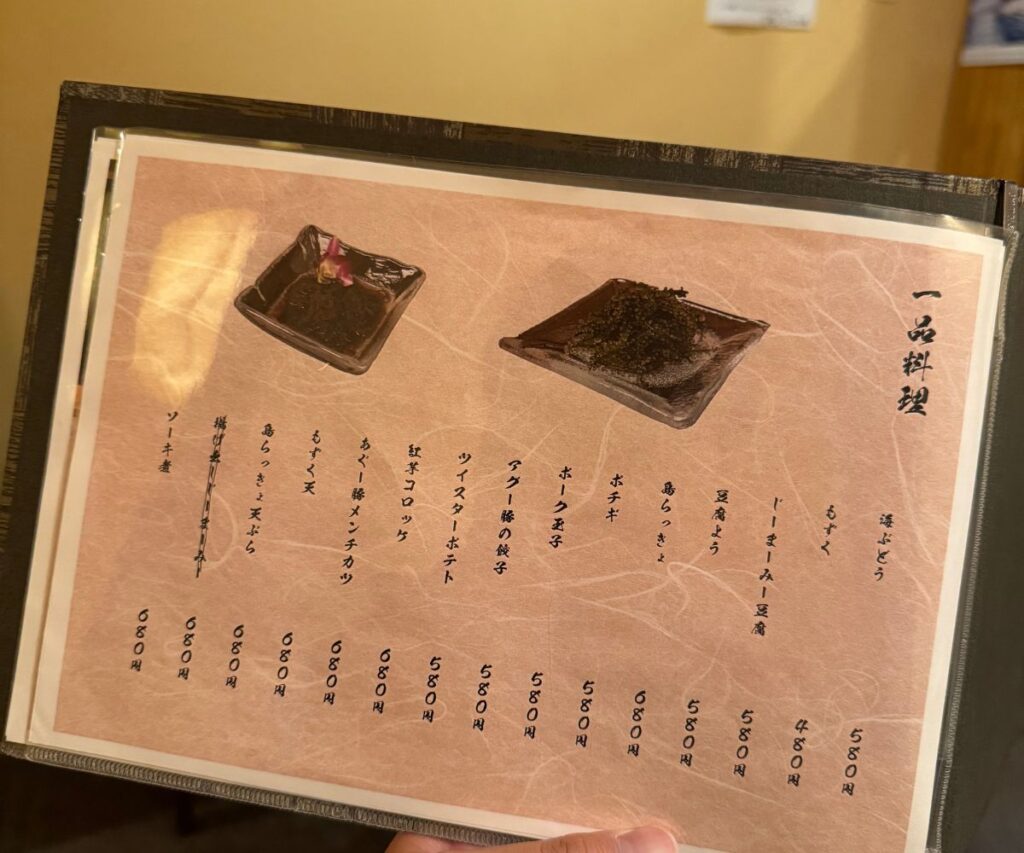 一品料理
海ぶどう 580円
もずく 480円
じーまーみー豆腐 580円
豆腐よう 580円
島らっきょ 680円
ポチギ 580円
ポーク玉子 580円
アグー豚の餃子 580円
ツイスターポテト 580円
紅芋コロッケ 680円
あぐー豚メンチカツ 680円
もずく天 680円
島らっきょ天ぷら 680円
揚げ出しじーまーみー 680円
ソーキ煮 680円